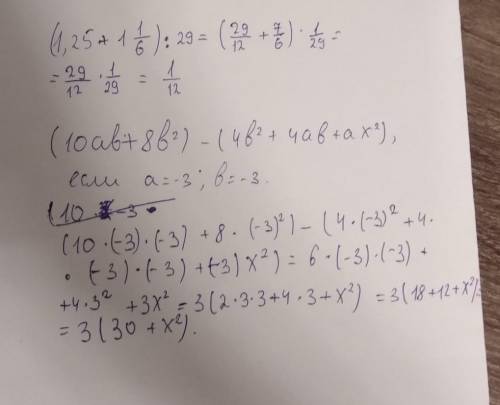 (1,25 + 1 1/6) : 29 = (29/12 + 7/6) · 1/29 =
= 29/12 · 1/29 = 1/12
(10ab + 8b²) - (4b² + 4ab + ax²),
если a = -3 ; b = -3.
(10 · -3 ·
(10 · (-3) · (-3) + 8 · (-3)²) - (4 · (-3)² + 4 ·
· (-3) · (-3) + (-3) x²) = 6 · (-3) · (-3) +
+ 4 · 3² + 3x² = 3(2 · 3 · 3 + 4 · 3 + x²) = 3(18 + 12 + x²) =
= 3(30 + x²).